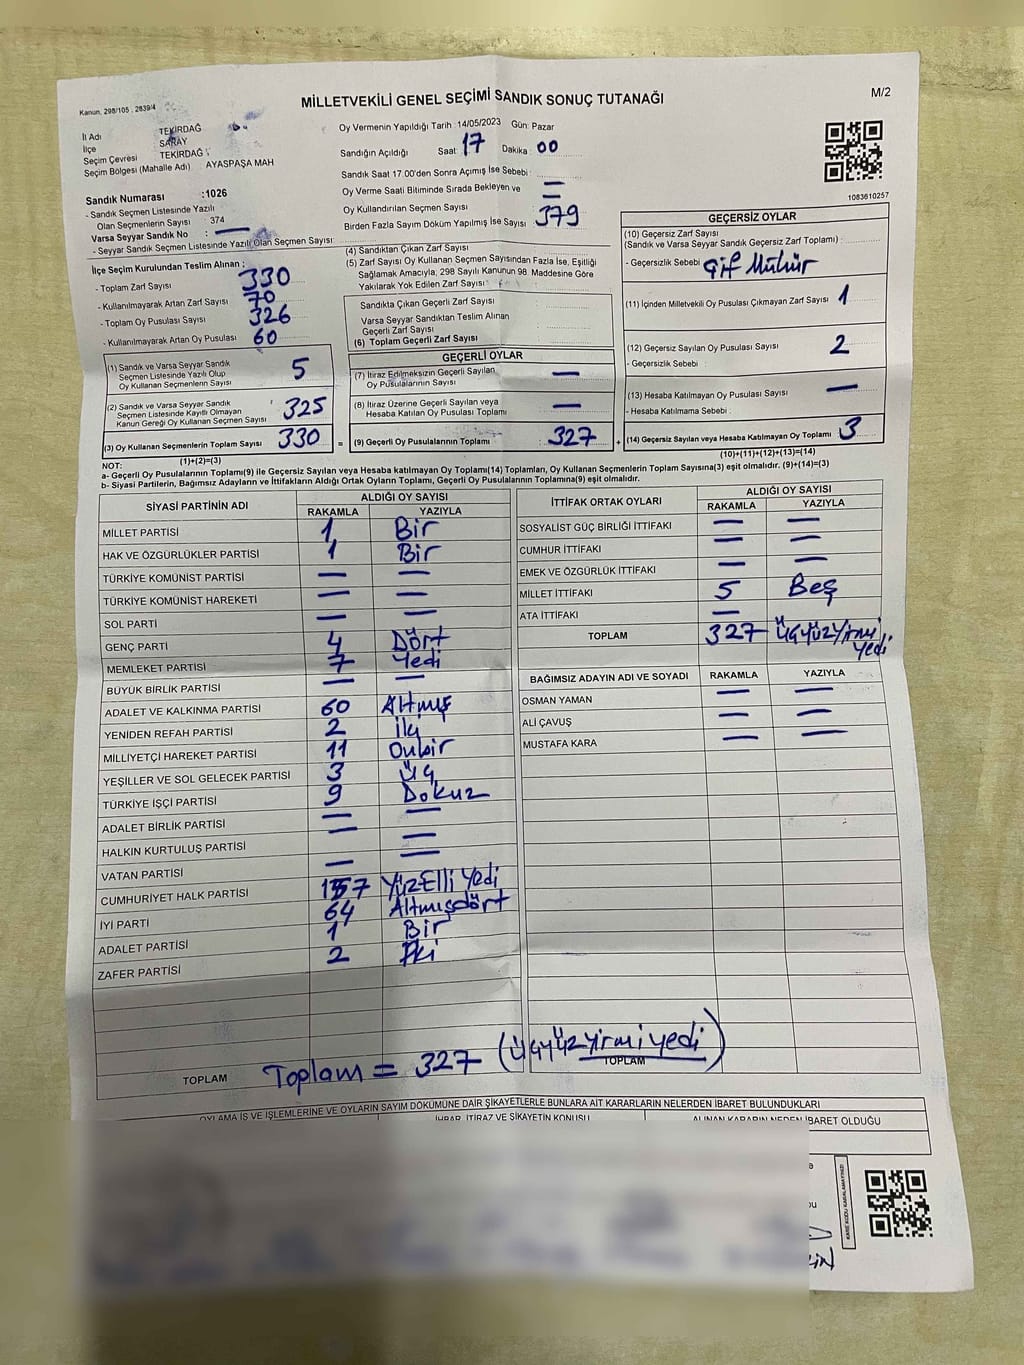 Kanun. 298/105 . 2839/4
MİLLETVEKİLİ GENEL SEÇİMİ SANDIK SONUÇ TUTANAĞI
M/2
İl Adı TEKİRDAĞ
İlçe SARAY
Seçim Çevresi TEKİRDAĞ
Seçim Bölgesi (Mahalle Adı) AYASPAŞA MAH
Oy Vermenin Yapıldığı Tarih :14/05/2023 Gün: Pazar
Sandığın Açıldığı Saat: 17 Dakika : 00
Sandık Saat 17.00'den Sonra Açımış İse Sebebi :
Oy Verme Saati Bitiminde Sırada Bekleyen ve
Oy Kullandırılan Seçmen Sayısı
Birden Fazla Sayım Döküm Yapılmış İse Sayısı 379
1083610257
Sandık Numarası :1026
- Sandık Seçmen Listesinde Yazılı
Olan Seçmenlerin Sayısı 374
Varsa Seyyar Sandık No : —
- Seyyar Sandık Seçmen Listesinde Yazılı Olan Seçmen Sayısı:
İlçe Seçim Kurulundan Teslim Alınan :
- Toplam Zarf Sayısı 330
- Kullanılmayarak Artan Zarf Sayısı 70
- Toplam Oy Pusulası Sayısı 326
- Kullanılmayarak Artan Oy Pusulası 60
(1) Sandık ve Varsa Seyyar Sandık
Seçmen Listesinde Yazılı Olup
Oy Kullanan Seçmenlerin Sayısı 5
(2) Sandık ve Varsa Seyyar Sandık
Seçmen Listesinde Kayıtlı Olmayan
Kanun Gereği Oy Kullanan Seçmen Sayısı 325
(3) Oy Kullanan Seçmenlerin Toplam Sayısı 330 =
(1)+(2)=(3)
(4) Sandıktan Çıkan Zarf Sayısı
(5) Zarf Sayısı Oy Kullanan Seçmen Sayısından Fazla İse, Eşitliği
Sağlamak Amacıyla, 298 Sayılı Kanunun 98. Maddesine Göre
Yakılarak Yok Edilen Zarf Sayısı :
Sandıkta Çıkan Geçerli Zarf Sayısı
Varsa Seyyar Sandıktan Teslim Alınan
Geçerli Zarf Sayısı
(6) Toplam Geçerli Zarf Sayısı
GEÇERLİ OYLAR
(7) İtiraz Edilmeksizin Geçerli Sayılan
Oy Pusulalarının Sayısı —
(8) İtiraz Üzerine Geçerli Sayılan veya
Hesaba Katılan Oy Pusulası Toplamı —
(9) Geçerli Oy Pusulalarının Toplamı 327 +
GEÇERSİZ OYLAR
(10) Geçersiz Zarf Sayısı
(Sandık ve Varsa Seyyar Sandık Geçersiz Zarf Toplamı) :
- Geçersizlik Sebebi Çif Mühür
(11) İçinden Milletvekili Oy Pusulası Çıkmayan Zarf Sayısı 1
(12) Geçersiz Sayılan Oy Pusulası Sayısı 2
- Geçersizlik Sebebi :
(13) Hesaba Katılmayan Oy Pusulası Sayısı —
- Hesaba Katılmama Sebebi :
(14) Geçersiz Sayılan veya Hesaba Katılmayan Oy Toplamı 3
(10)+(11)+(12)+(13)=(14)
NOT:
a- Geçerli Oy Pusulalarının Toplamı(9) ile Geçersiz Sayılan veya Hesaba katılmayan Oy Toplamı(14) Toplamları, Oy Kullanan Seçmenlerin Toplam Sayısına(3) eşit olmalıdır. (9)+(14)=(3)
b- Siyasi Partilerin, Bağımsız Adayların ve İttifakların Aldığı Ortak Oyların Toplamı, Geçerli Oy Pusulalarının Toplamına(9) eşit olmalıdır.
SİYASİ PARTİNİN ADI ALDIĞI OY SAYISI
RAKAMLA YAZIYLA
MİLLET PARTİSİ 1 Bir
HAK VE ÖZGÜRLÜKLER PARTİSİ 1 Bir
TÜRKİYE KOMÜNİST PARTİSİ — —
TÜRKİYE KOMÜNİST HAREKETİ — —
SOL PARTİ — —
GENÇ PARTİ 4 Dört
MEMLEKET PARTİSİ 7 Yedi
BÜYÜK BİRLİK PARTİSİ — —
ADALET VE KALKINMA PARTİSİ 60 Altmış
YENİDEN REFAH PARTİSİ 2 İki
MİLLİYETÇİ HAREKET PARTİSİ 11 Onbir
YEŞİLLER VE SOL GELECEK PARTİSİ 3 Üç
TÜRKİYE İŞÇİ PARTİSİ 9 Dokuz
ADALET BİRLİK PARTİSİ — —
HALKIN KURTULUŞ PARTİSİ — —
VATAN PARTİSİ — —
CUMHURİYET HALK PARTİSİ 157 YüzElli Yedi
İYİ PARTİ 64 Altmışdört
ADALET PARTİSİ 1 Bir
ZAFER PARTİSİ 2 İki
TOPLAM Toplam = 327 (Üçyüzyirmiyedi)
İTTİFAK ORTAK OYLARI ALDIĞI OY SAYISI
RAKAMLA YAZIYLA
SOSYALİST GÜÇ BİRLİĞİ İTTİFAKI — —
CUMHUR İTTİFAKI — —
EMEK VE ÖZGÜRLÜK İTTİFAKI — —
MİLLET İTTİFAKI 5 Beş
ATA İTTİFAKI —
TOPLAM 327 Üçyüzyirmi
yedi
BAĞIMSIZ ADAYIN ADI VE SOYADI RAKAMLA YAZIYLA
OSMAN YAMAN — —
ALİ ÇAVUŞ — —
MUSTAFA KARA — —
TOPLAM
OYLAMA İŞ VE İŞLEMLERİNE VE OYLARIN SAYIM DÖKÜMÜNE DAİR ŞİKAYETLERLE BUNLARA AİT KARARLARIN NELERDEN İBARET BULUNDUKLARI
İHBAR, İTİRAZ VE ŞİKAYETİN KONUSU
ALINAN KARARIN NEDEN İBARET OLDUĞU
KARE KODU KARALAMAYINIZ!